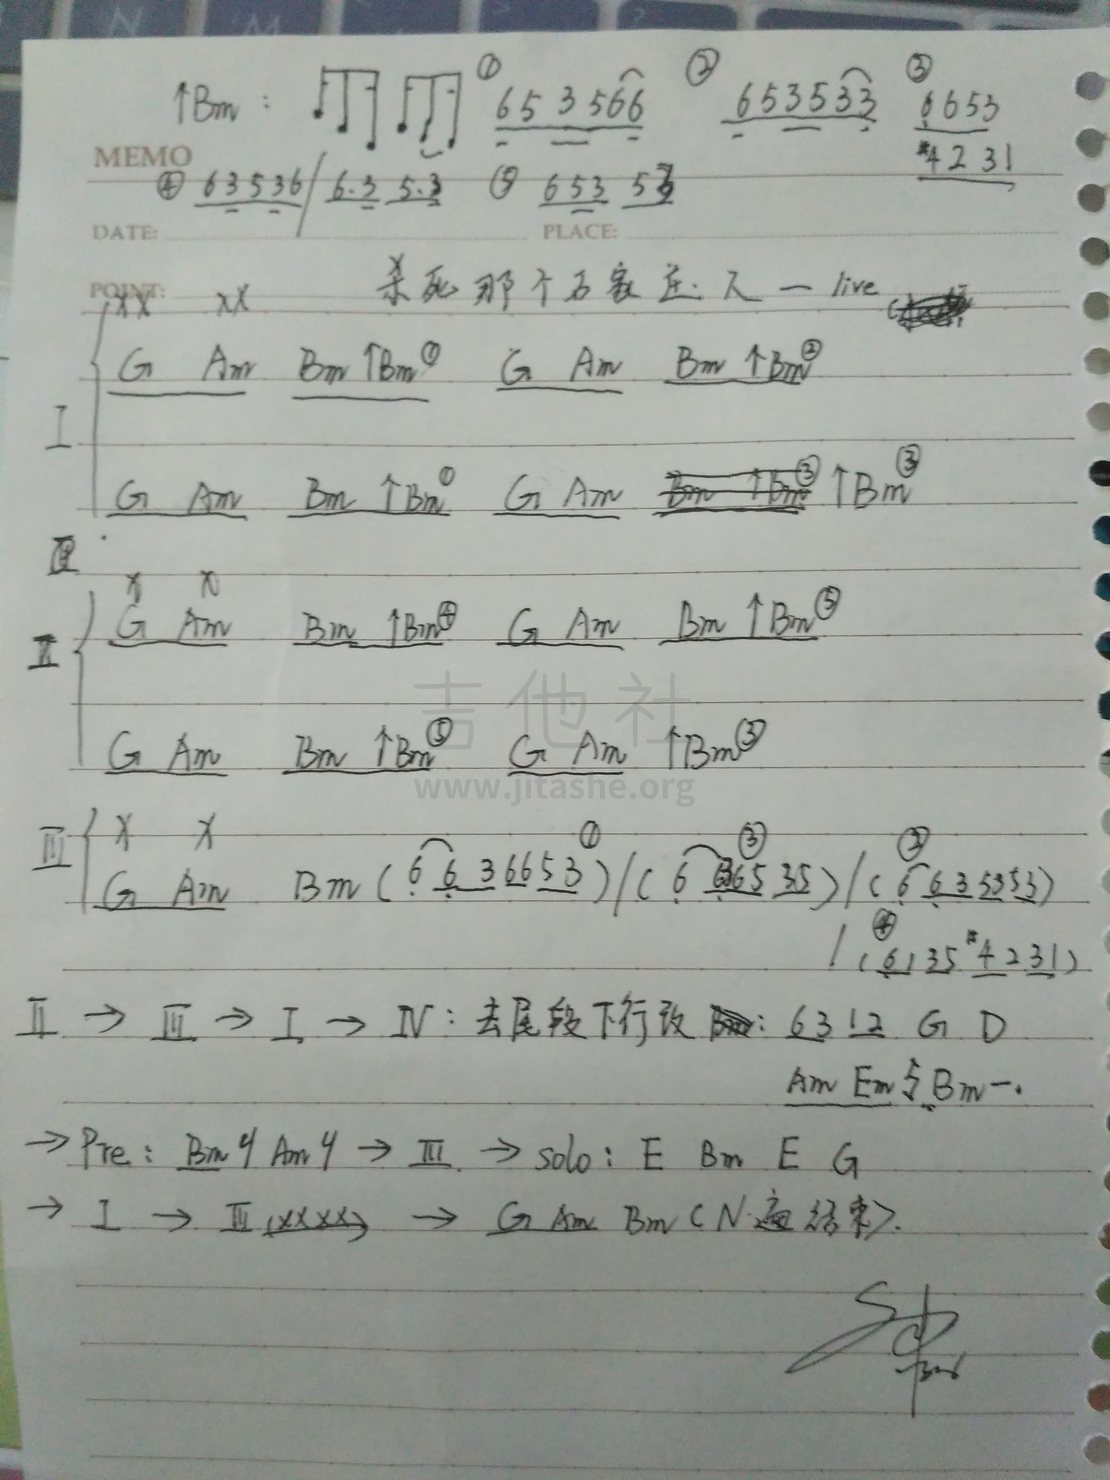 ↑Bm : ① 653566 ② 653533 ③ 6653
#4231
MEMO
④ 63536 / 6.3 5.3 ⑤ 653 53
DATE: PLACE:
POINT:
杀死那个石家庄人 — live
xx xx
G Am Bm ↑Bm① G Am Bm ↑Bm②
I
G Am Bm ↑Bm① G Am ↑Bm③
x x
G Am Bm ↑Bm④ G Am Bm ↑Bm⑤
II
吉他社
G Am Bm ↑Bm⑤ G Am ↑Bm③
www.jitashe.org
III x x
G Am Bm ( 6 6 3 6653 )① / ( 6 65 35 ) / ( 6 635353 )
/ ( 6135 #4231 )④
II → III → I → IV : 去尾段下行改 : 6312 G D
Am Em Bm —.
→ Pre : Bm 4 Am 4 → III → solo : E Bm E G
→ I → III (xxxx) → G Am Bm ( N遍结束 ).